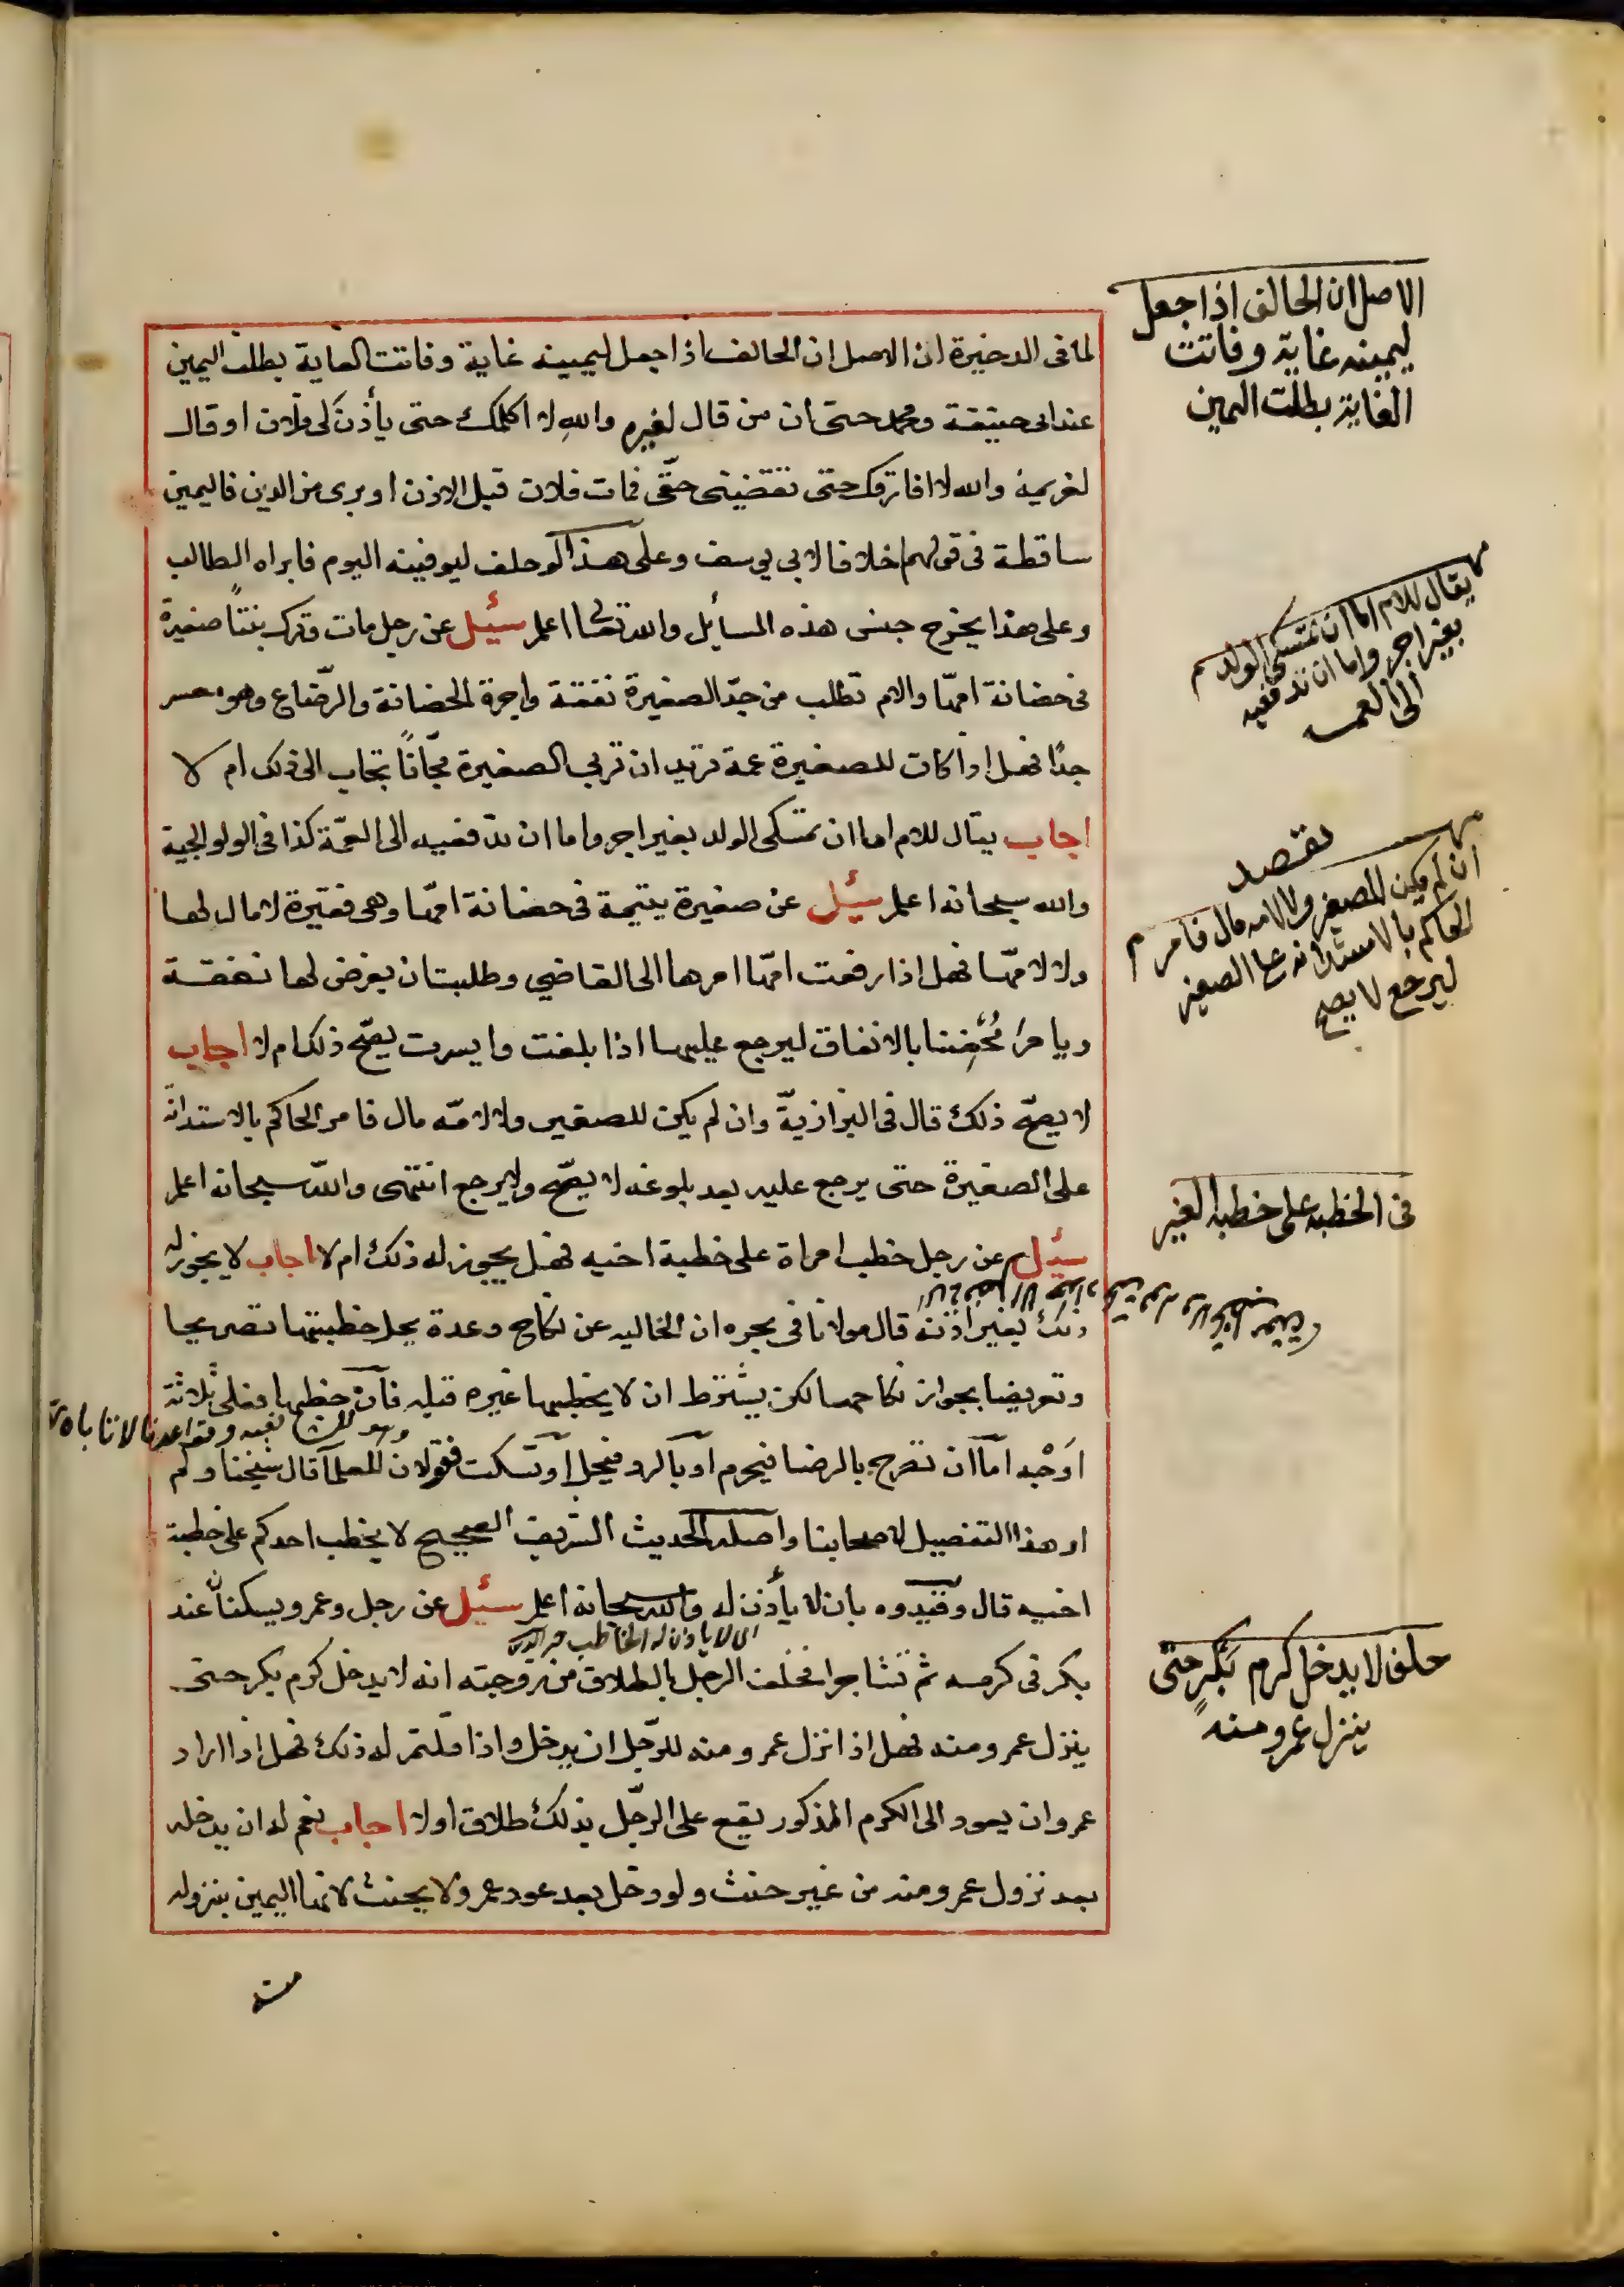 لما فى الدخيرة ان الاصل ان الحالف اذا جعل ليمينه غاية وفاتت الغاية بطلت اليمين
عند ابى حنيفة ومحمد حتى ان من قال لغيره والله لا اكلمك حتى يأذن لى فلان او قال
لغريمه والله لا افارقك حتى تقضينى حقّى فمات فلان قبل الاذن او برى من الدين فاليمين
ساقطة فى قولهم خلافا لابى يوسف وعلى هذا لو حلف ليوفينه اليوم فابراه الطالب
وعلى هذا يخرج جنس هذه المسأيل والله تعالى اعلم سئيل عن رجل مات وترك بنتاً صغيرة
فى حضانة امها والام تطلب من جدّ الصغيرة نفقة واجرة الحضانة والرضاع وهو معسر
جدًا فهل اذا كان للصغيرة عمة تريد ان تربى الصغيرة مجّاناً تجاب الى ذلك ام لا
اجاب يقال للام اما ان تمسكى الولد بغير اجر واما ان تدفعيه الى العمّة كذا فى الولوالجية
والله سبحانه اعلم سئيل عن صغيرة يتيمة فى حضانة امّها وهى فقيرة لا مال لها
ولا لامّها فهل اذا رفعت امّها امرها الى القاضي وطلبت ان يفرض لها نفقة
ويامر بالانفاق ليرجع عليها اذا بلغت وايسرت يصحّ ذلك ام لا اجاب
لا يصحّ ذلك قال فى البزازيّة وان لم يكن للصغير ولا لامّه مال فامر الحاكم بالاستدانة
على الصغيرة حتى يرجع عليه بعد بلوغه لا يصحّ ولا يرجع انتهى والله سبحانه اعلم
سئيل عن رجل خطب امراة على خطبة اخيه فهل يجوز له ذلك ام لا اجاب لا يجوز له
ذلك بغير اذنه قال مولانا فى بحره ان الخاليه عن نكاح وعدة يحل خطبتها تصريحا
وتعريضا بجواز نكاحها لكن يشترط ان لا يخطبها غيره قبله فان خطبها فعلى ثلاثة
اوجه امّا ان تصرح بالرضا فيحرم او بالرد فيحل او تسكت فقولان للعلما قال شيخنا ولم
ار هذا التفصيل لاصحابنا واصله الحديث الشريف الصحيح لا يخطب احدكم على خطبة
اخيه قال وقيدوه بان لا يأذن له والله سبحانه اعلم سئيل عن رجل وعمرو يسكنان عند
بكر فى كرمه ثم تشاجرا فحلف الرجل بالطلاق من زوجته انه لا يدخل كرم بكر حتى
ينزل عمرو منه فهل اذا نزل عمرو منه للرّجل ان يدخل واذا قلتم له ذلك فهل اذا اراد
عمرو ان يعود الى الكرم المذكور يقع على الرجل بذلك طلاق او لا اجاب نعم له ان يدخله
بعد نزول عمرو منه من غير حنث ولو دخل بعد عود عمرو لا يحنث لانتها اليمين بنزوله
الاصل ان الحالف اذا جعل
ليمينه غاية وفاتت
الغاية بطلت اليمين
يقال للام اما ان تمسكى الولد
بغير اجر واما ان تدفعيه
الى العمه
ان لم يكن للصغير ولا لامه مال فامر
الحاكم بالاستدانه على الصغير
ليرجع لا يصح
فى الخطبة على خطبة الغير
حلف لا يدخل كرم بكر حتى
ينزل عمرو منه